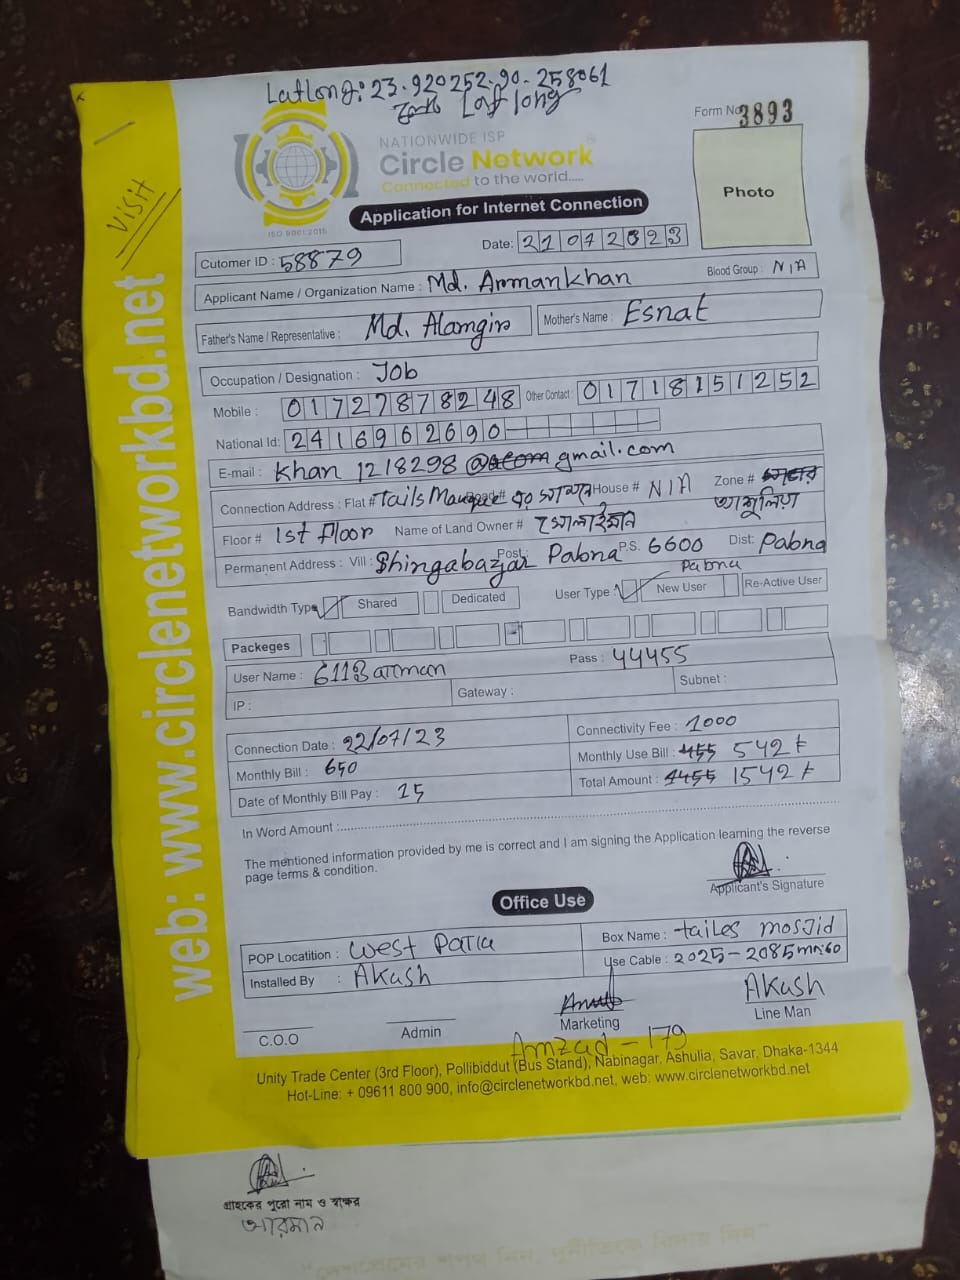 Latlong: 23.920252.90.258061
Lat long
Form No 3893
NATIONWIDE ISP
Circle Network
Connected to the world.....
ISO 9001:2015
Photo
visit
Application for Internet Connection
Date: 21072023
Cutomer ID : 58879
Applicant Name / Organization Name : Md. Armankhan Blood Group : N/A
Father's Name / Representative : Md. Alamgir Mother's Name : Esnat
Occupation / Designation : Job
Mobile : 01727878248 Other Contact : 01718151252
National Id: 2416962690
E-mail : khan 1218298 @ gmail.com
Connection Address : Flat # Tails Mosque House # N/A Zone #
আশুলিয়া
Floor # 1st Floor Name of Land Owner #
Permanent Address : Vill : Shingabazar Post : Pabna P.S. 6600 Dist: Pabna
Pabna
Bandwidth Type Shared Dedicated User Type : New User Re-Active User
Packeges
User Name : 6118arman Pass : 44455
IP : Gateway : Subnet :
Connection Date : 22/07/23 Connectivity Fee : 1000
Monthly Bill : 650 Monthly Use Bill : 455 542 ৳
Date of Monthly Bill Pay : 15 Total Amount : 1455 1542 ৳
In Word Amount :
The mentioned information provided by me is correct and I am signing the Application learning the reverse
page terms & condition.
Applicant's Signature
Office Use
POP Locatition : West Para Box Name : tailes mosjid
Installed By : Akash Use Cable : 2025-2085
Akash
C.O.O Admin Marketing Line Man
Amzad - 179
Unity Trade Center (3rd Floor), Pollibiddut (Bus Stand), Nabinagar, Ashulia, Savar, Dhaka-1344
Hot-Line: + 09611 800 900, info@circlenetworkbd.net, web: www.circlenetworkbd.net
web: www.circlenetworkbd.net
গ্রাহকের পুরো নাম ও স্বাক্ষর
আরমান